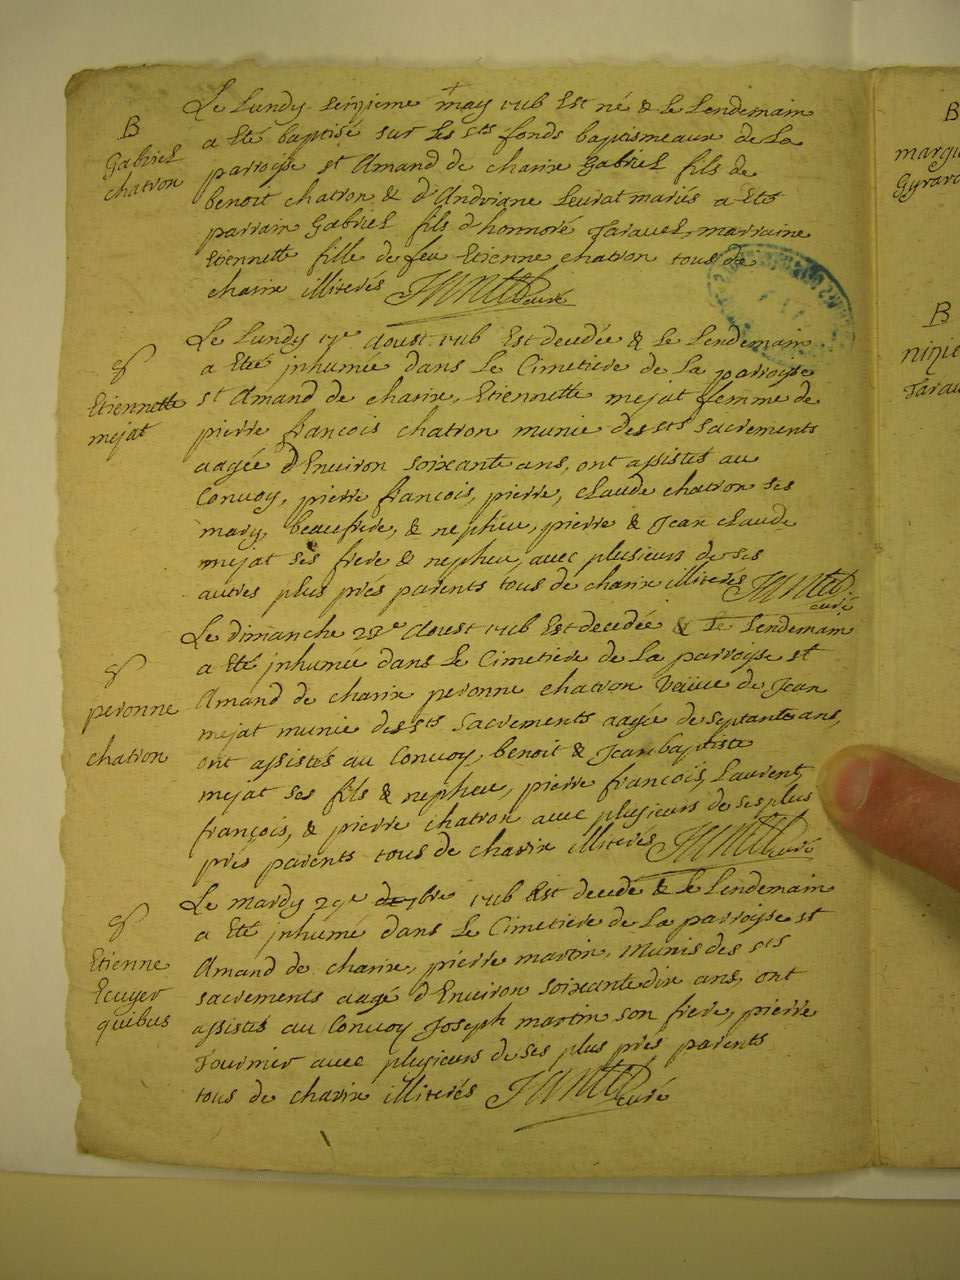 B
Gabriel
chatron
Le Lundy seizieme may 1716 Est né & le Lendemain
a Eté baptisé sur les sts fonds baptismeaux de La
parroise st Amand de charix Gabriel fils de
benoit chatron & d'Andriane Leurat mariés a Eté
parrain Gabriel fils d'honnoré Taravel, marraine
Etiennette fille de feu Etienne chatron tous de
charix illiterés
curé
Etiennette
mejat
Le Lundy 17e Aoust 1716 Est decedée & Le Lendemain
a Eté jnhumée dans Le Cimetiere de La parroise
st Amand de charix, Etiennette mejat ffemme de
pierre francois chatron munie des sts sacrements
aagée d'Environ soixante ans, ont assistés au
Convoy, pierre francois, pierre, claude chatron ses
mary, beaufrere, & nepheu, pierre & Jean claude
mejat ses frere & nepheu, avec plusieurs de ses
autres plus prés parents tous de charix illiterés
curé
peronne
chatron
Le dimanche 22e Aoust 1716 Est decedée & Le Lendemain
a Eté jnhumée dans Le Cimetiere de La parroise st
Amand de charix peronne chatron Veüve de Jean
mejat munie des sts sacrements aagée de septante ans,
ont assistés au Convoy, benoit & Jean baptiste
mejat ses fils & nepheu, pierre françois, Laurent,
françois, & pierre chatron avec plusieurs de ses plus
prés parents tous de charix illiterés
curé
Etienne
Ecuyer
quibus
Le mardy 29e 7bre 1716 Est decedé & Le Lendemain
a Eté jnhumé dans Le Cimetiere de La parroise st
Amand de charix, pierre martin, Munis des sts
sacrements aagé d'Environ soixante dix ans, ont
assistés au Convoy Joseph martin son frere, pierre
Tournier avec plusieurs de ses plus prés parents
tous de charix illiterés
curé
B
B